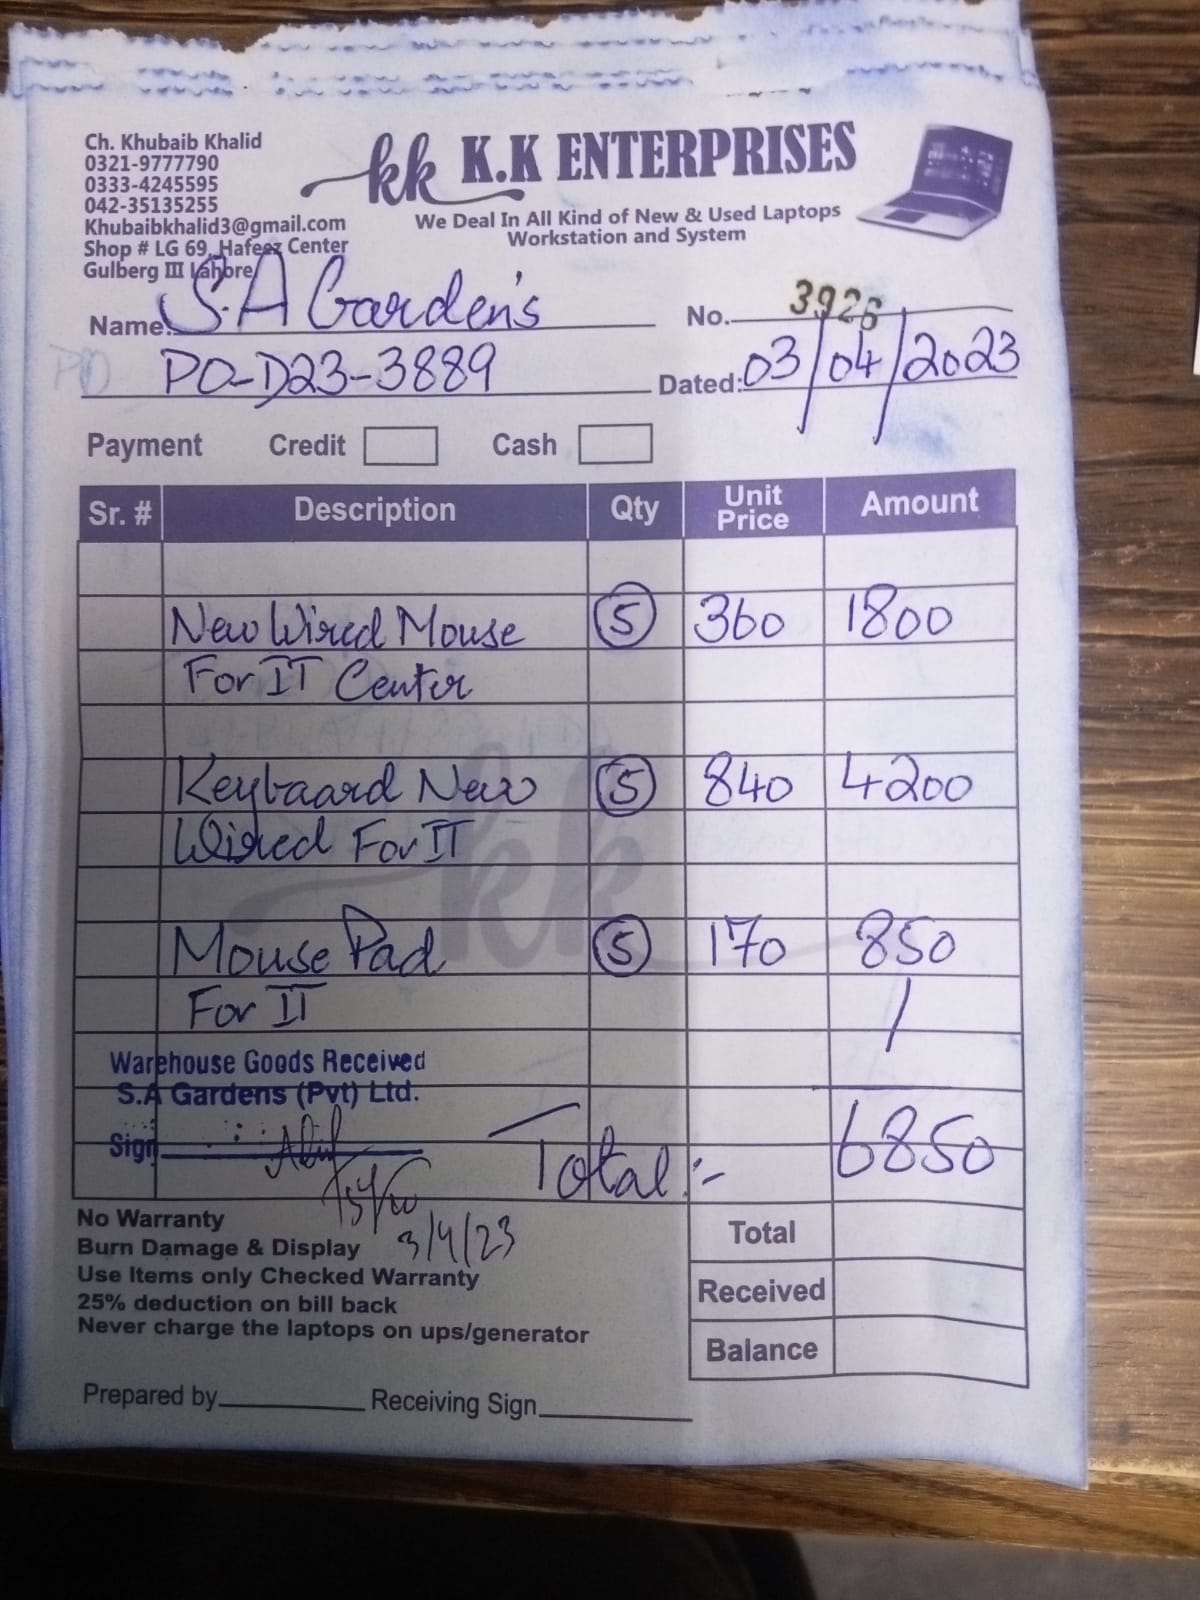 Ch. Khubaib Khalid
0321-9777790
0333-4245595
042-35135255
Khubaibkhalid3@gmail.com
Shop # LG 69, Hafeez Center
Gulberg III Lahore
kk K.K ENTERPRISES
We Deal In All Kind of New & Used Laptops
Workstation and System
Name: S.A Garden's
No. 3926
PO PO-D23-3889
Dated: 03/04/2023
Payment Credit Cash
Sr. # Description Qty Unit Price Amount
New Wired Mouse 5 360 1800
For IT Center
Keybaard New 5 840 4200
Wired For IT
Mouse Pad 5 170 850
For IT /
Warehouse Goods Received
S.A Gardens (Pvt) Ltd.
Sign
Total:- 6850
3/4/23
No Warranty
Burn Damage & Display
Use Items only Checked Warranty
25% deduction on bill back
Never charge the laptops on ups/generator
Total
Received
Balance
Prepared by Receiving Sign
kk